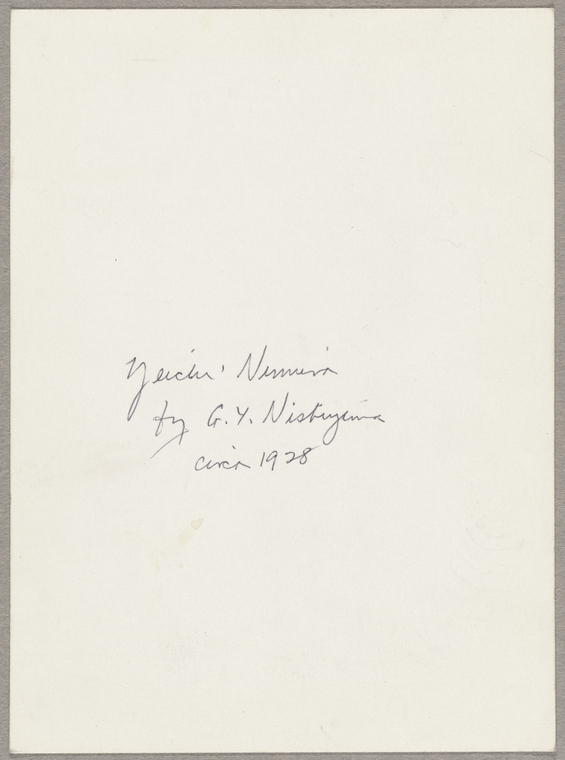 Yeichi Nimura
by G.Y. Nishiyama
circa 1928